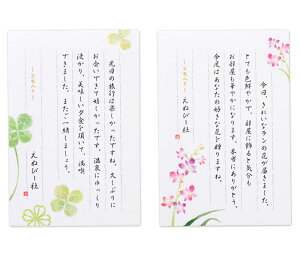 先日の旅行は楽しかったですね。久しぶりに
お会いできて嬉しかったです。温泉にゆっくり
浸かり、美味しい夕食を頂いて、満喫
できました。またご一緒しましょう。
えぬびー社
今日、きれいなランの花が届きました。
とても色鮮やかで、部屋に飾ると気分も
お部屋も華やかになります。本当にありがとう。
今度はあなたの好きな花を贈りますね。
えぬびー社